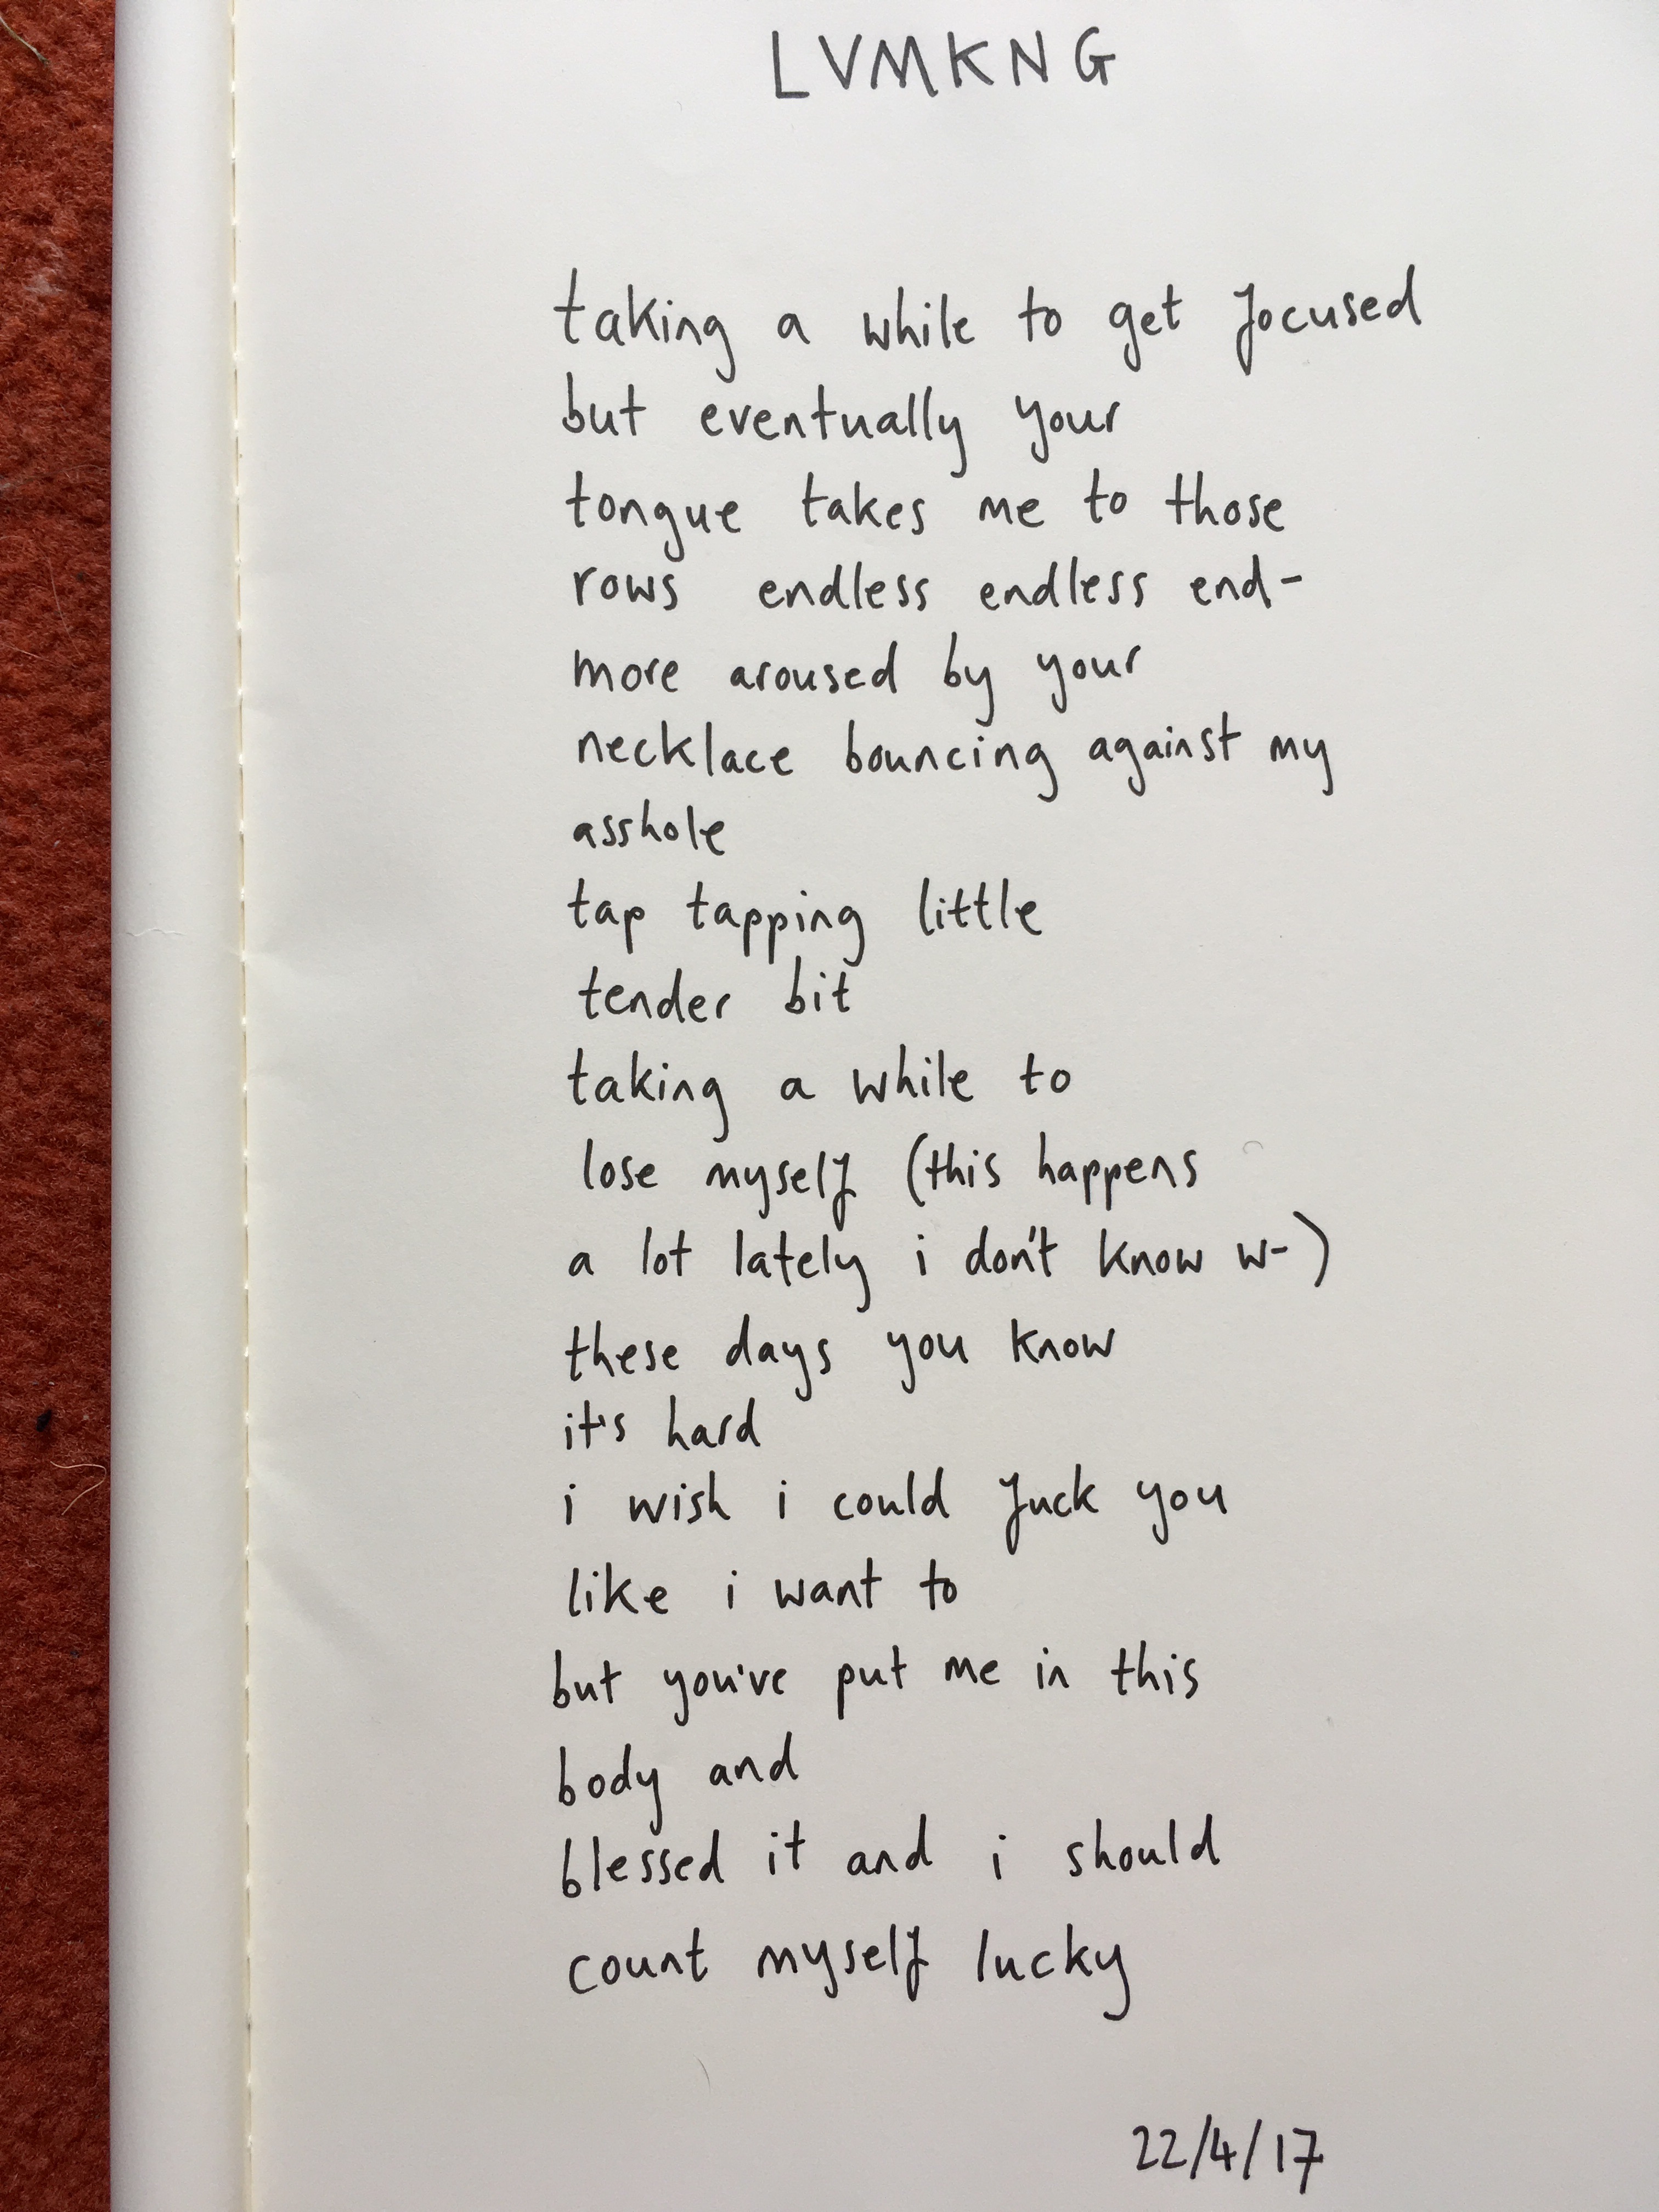 LVMKNG
taking a while to get focused
but eventually your
tongue takes me to those
rows endless endless end-
more aroused by your
necklace bouncing against my
asshole
tap tapping little
tender bit
taking a while to
lose myself (this happens
a lot lately i don't know w-)
these days you know
it's hard
i wish i could fuck you
like i want to
but you've put me in this
body and
blessed it and i should
count myself lucky
22/4/17